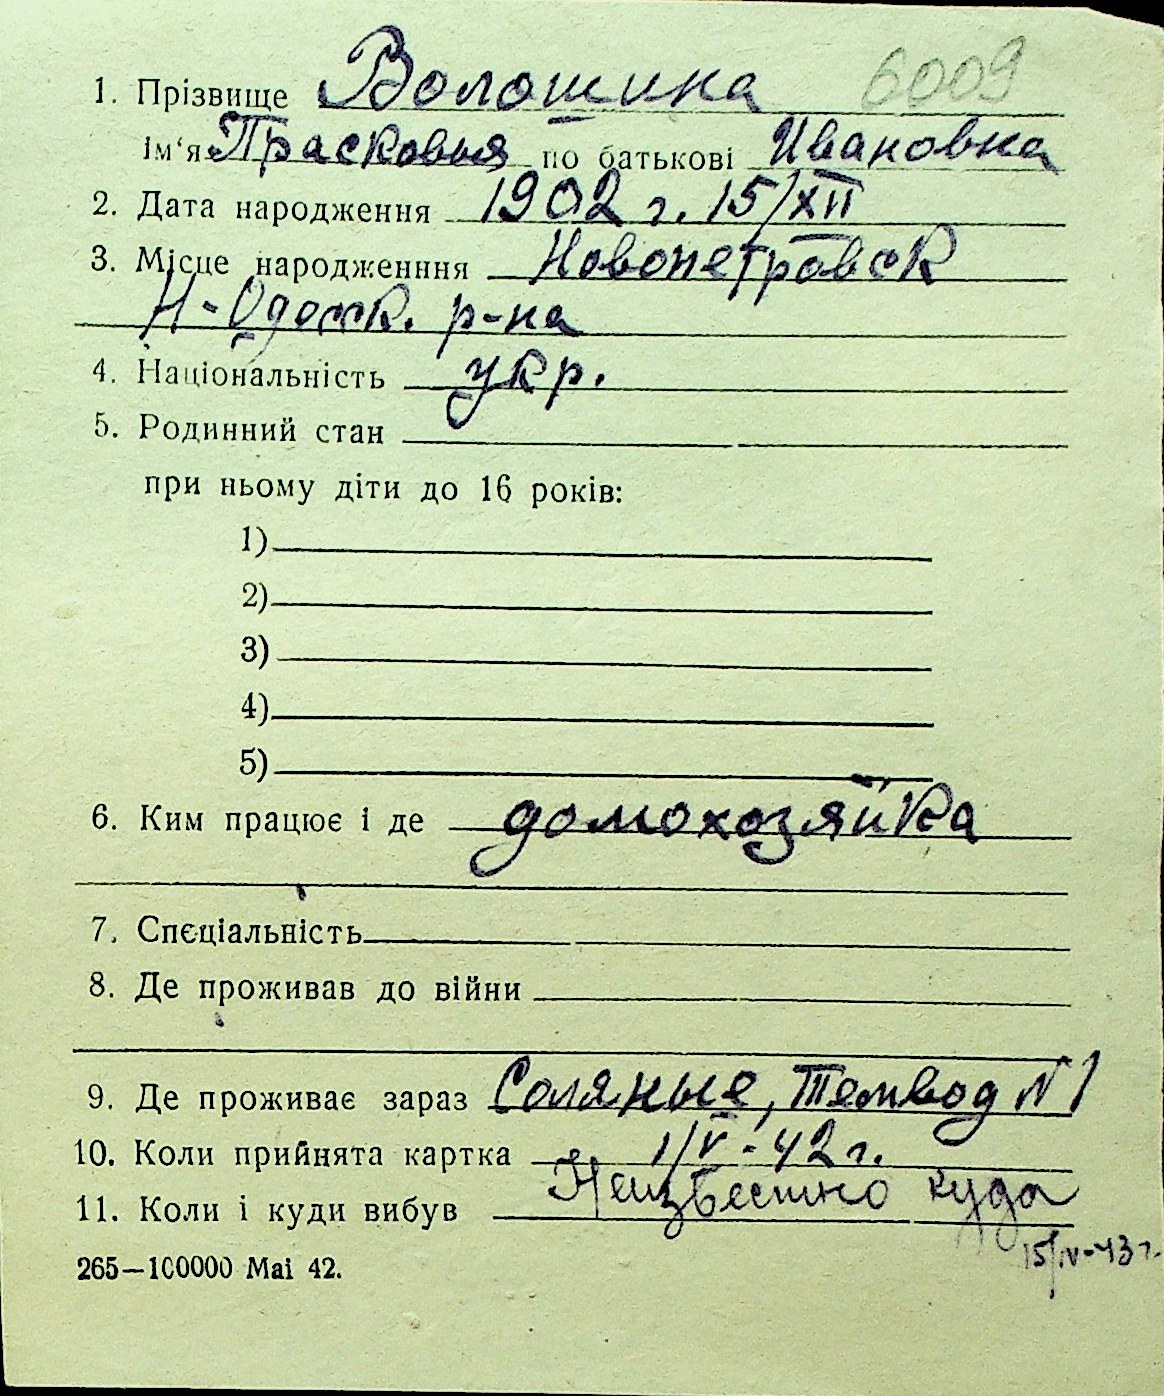 1. Прізвище Волошина 6009
ім‘я Прасковья по батькові Ивановна
2. Дата народження 1902 г. 15/XII
3. Місце народженння Новопетровск
Н-Одесск. р-на
4. Національність укр.
5. Родинний стан
при ньому діти до 16 років:
1)
2)
3)
4)
5)
6. Ким працює і де домохозяйка
7. Спеціальність
8. Де проживав до війни
9. Де проживає зараз Соляные, Темвод N 1
10. Коли прийнята картка 1/V-42 г.
11. Коли і куди вибув Неизвестно куда
15/IV-43 г.
265—100000 Mai 42.